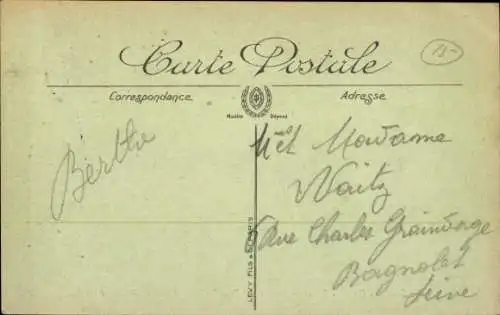 Carte Postale
Correspondance
Adresse
Modèle Déposé
Berthe
M et Madame
Waitz
Rue Charles Graindorge
Bagnolet
Seine
LEVY FILS & Cie PARIS